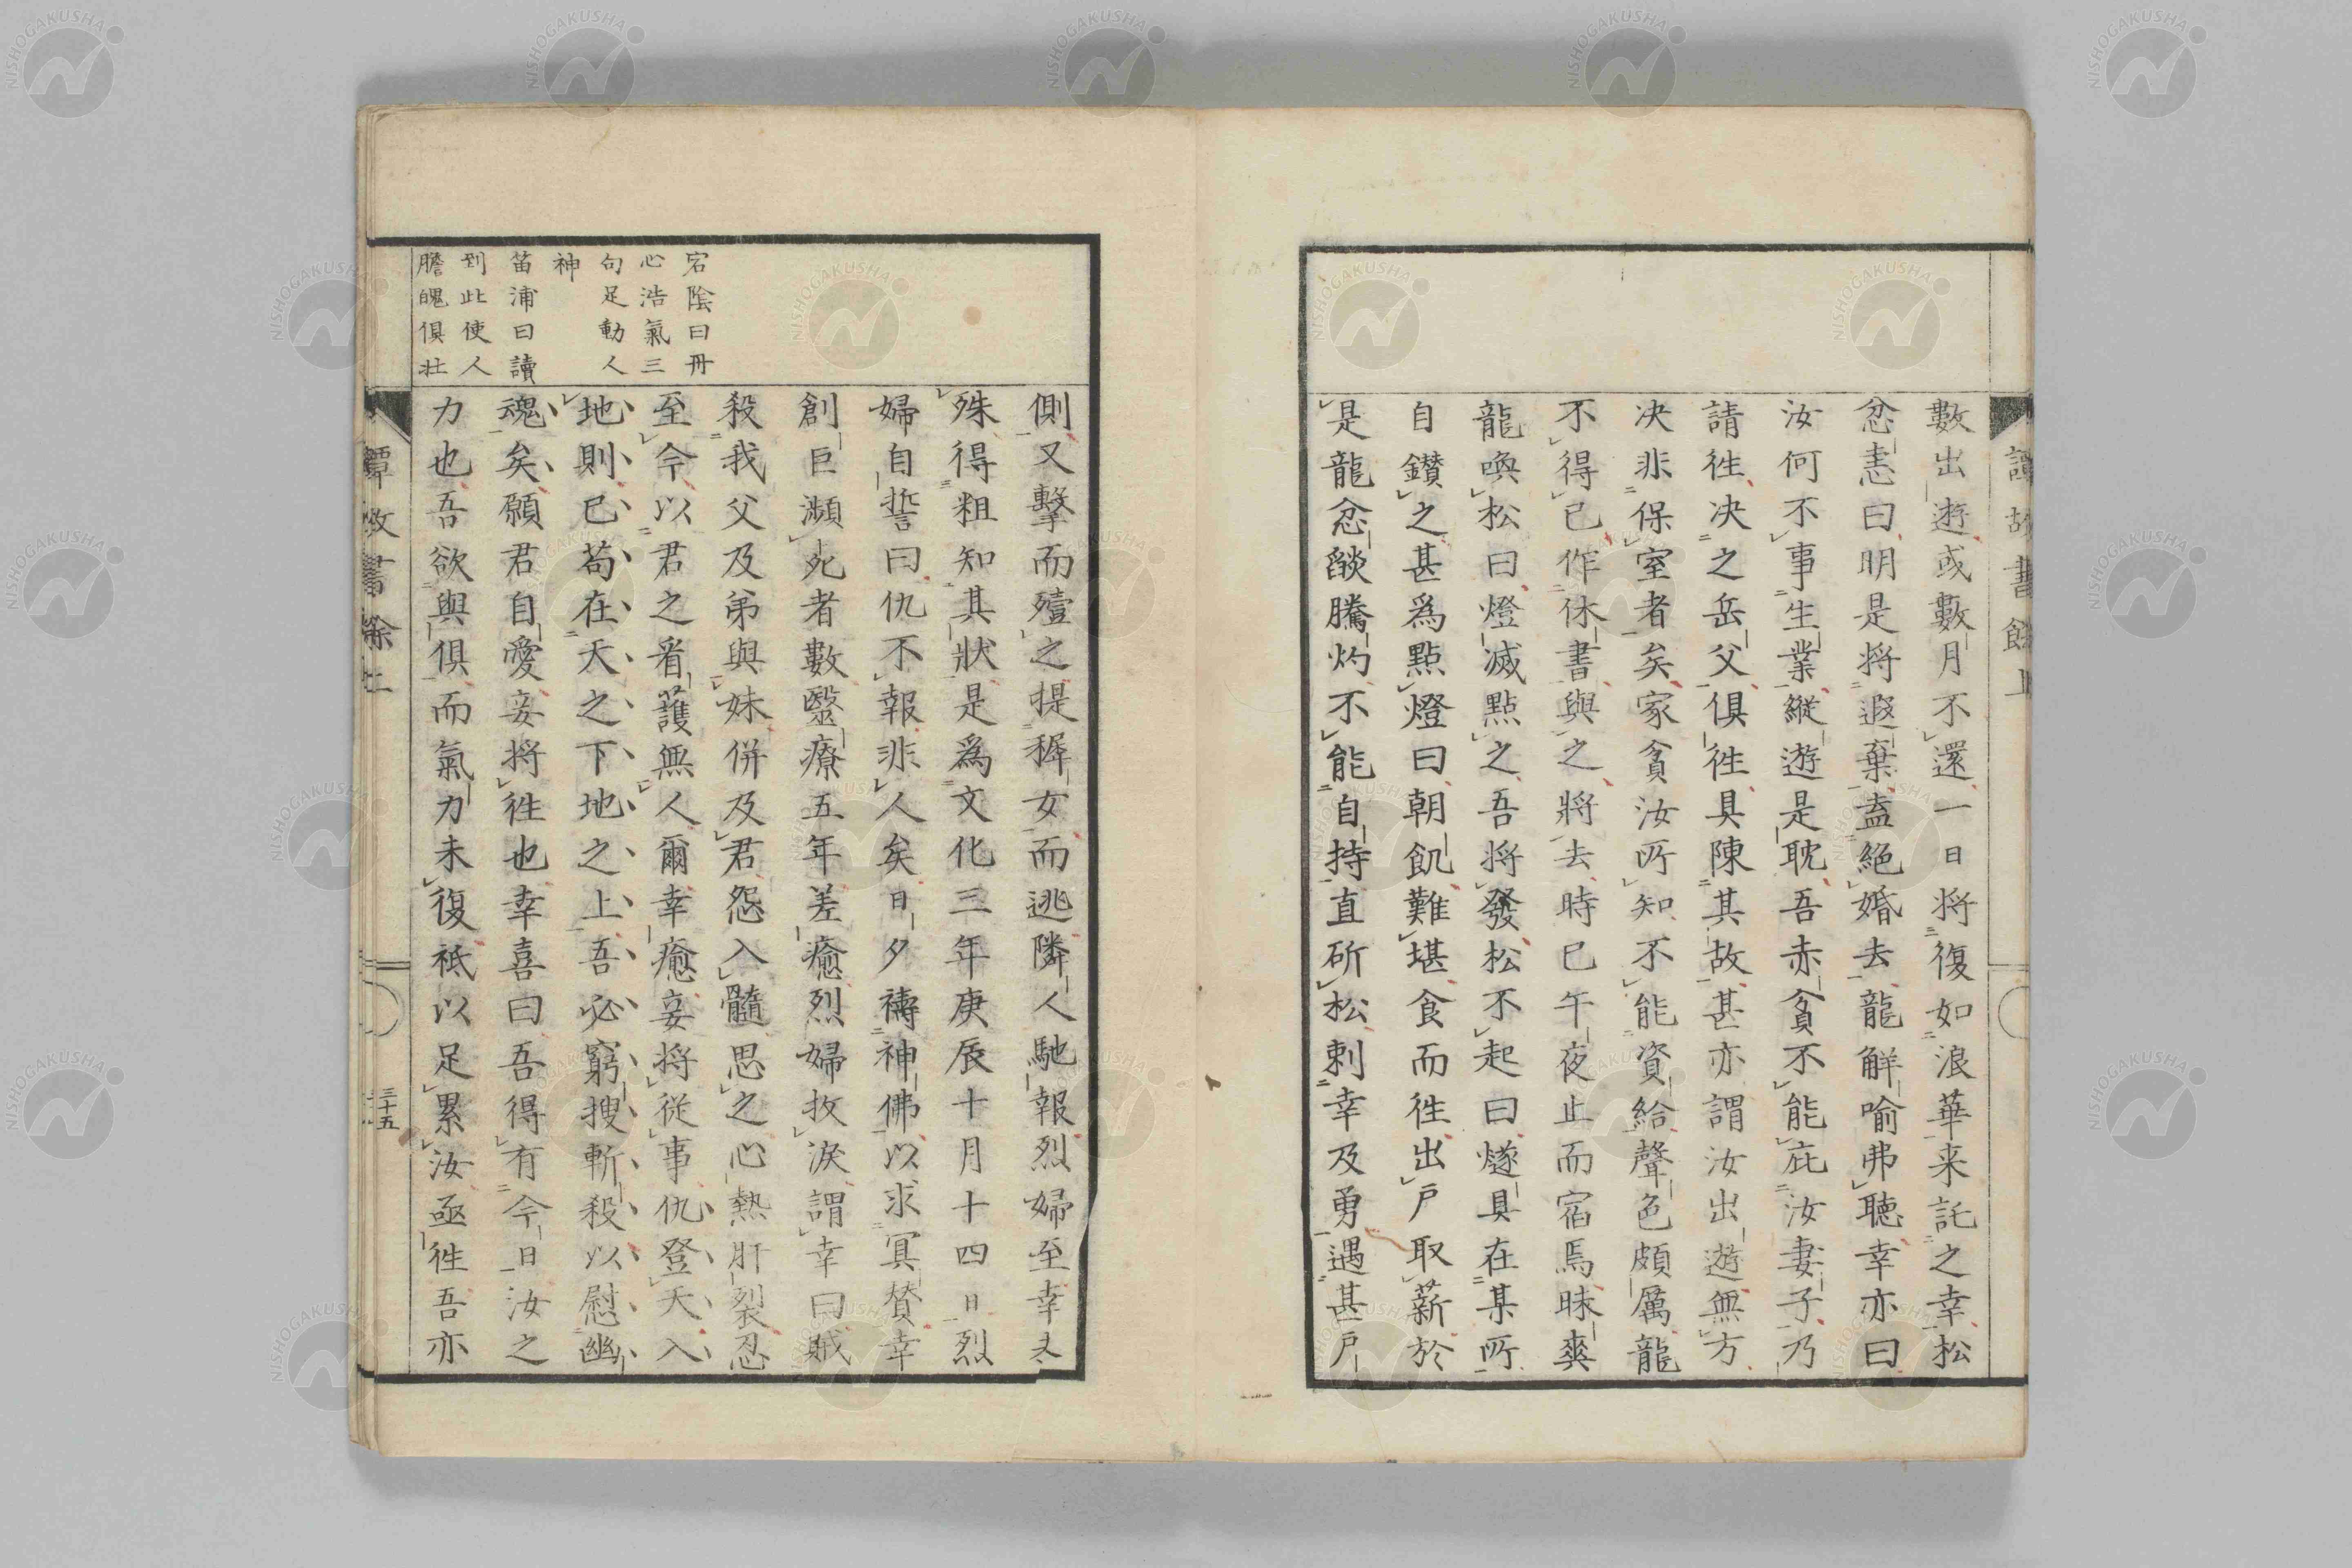 譚故書餘上
數出遊或數月不還一日將復如浪華来託之幸松
忿恚曰明是将遐棄盍絕婚去龍觧喻弗聴幸亦曰
汝何不事生業縱遊是耽吾赤貧不能庇汝妻子乃
請徃决之岳父俱徃具陳其故甚亦謂汝出遊無方
决非保室者矣家貧汝所知不能資給聲色頗厲龍
不得已作休書與之將去時已午夜止而宿焉昧爽
龍喚松曰燈滅點之吾將發松不起曰燧具在某所
自鑚之甚爲點燈曰朝飢難堪食而徃出戶取薪於
是龍忿燄騰灼不能自持直斫松刺幸及勇遇甚戶
側又擊而殪之提穉女而逃隣人馳報烈婦至幸未
殊得粗知其狀是爲文化三年庚辰十月十四日烈
婦自誓曰仇不報非人矣日夕禱神佛以求冥賛幸
創巨瀕死者數毉療五年差癒烈婦抆淚謂幸曰賊
殺我父及弟與妹併及君怨入髓思之心熱肝裂忍
至今以君之看護無人爾幸癒妾将従事仇登天入
地則已苟在天之下地之上吾必窮搜斬殺以慰幽
魂矣願君自愛妾将徃也幸喜曰吾得有今日汝之
力也吾欲與俱而氣力未復袛以足累汝亟徃吾亦
宕陰曰丹
心浩氣三
句足動人
神
笛浦曰讀
到此使人
膽魄俱壮
譚故書餘上
三十五